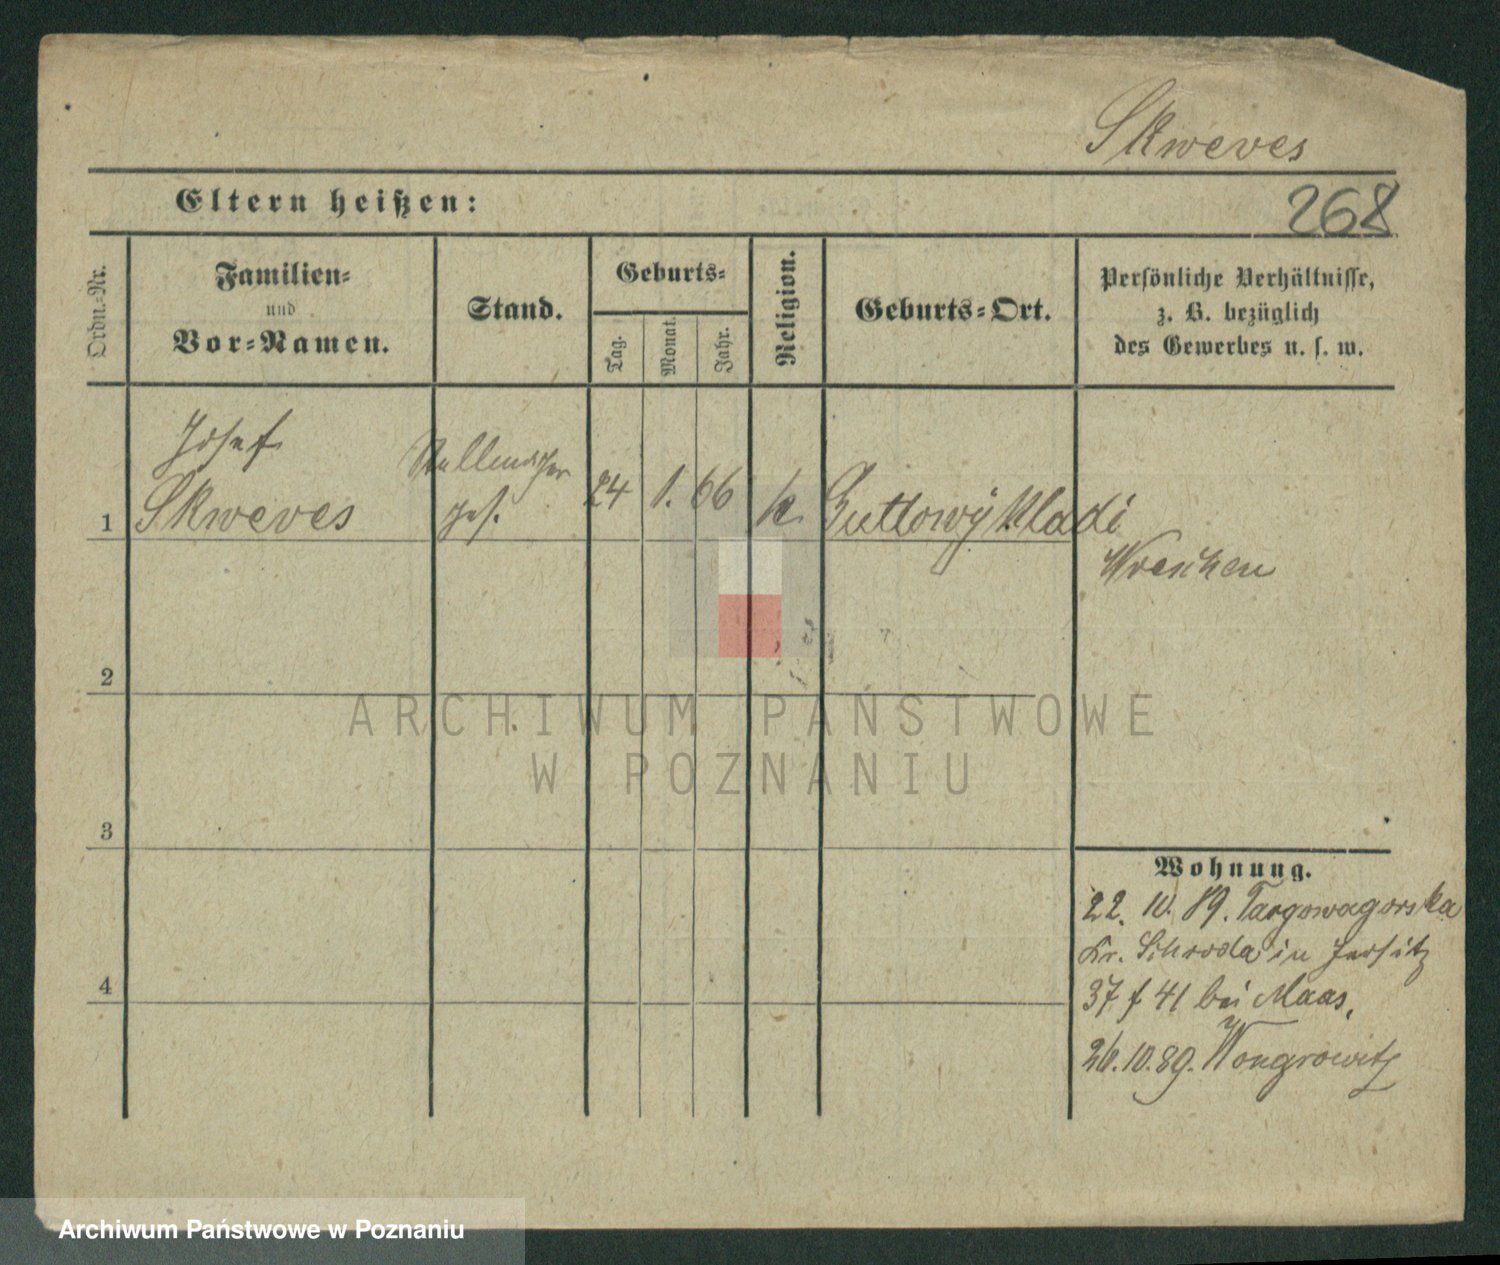 Skweves
Eltern heißen:
268
Ordn.-Nr.
Familien-
und
Vor-Namen.
Stand.
Geburts-
Tag.
Monat.
Jahr.
Religion.
Geburts-Ort.
Persönliche Verhältnisse,
z. B. bezüglich
des Gewerbes u. s. w.
Josef
Stellmacher
1 Skweves ges. 24 1. 66 k. Guttowy
Wreschen
2
ARCHIWUM PAŃSTWOWE
W POZNANIU
3
Wohnung.
22. 10. 89. Targowagorska
Kr. Schroda in Jersitz
4
37 f 41 bei Maas,
26.10.89. Wongrowitz
Archiwum Państwowe w Poznaniu